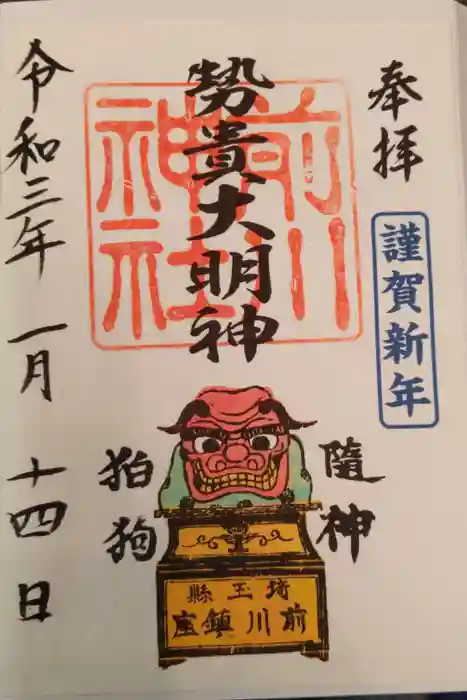 奉拝
謹賀新年
前川
神社
勢貴大明神
隨神
狛狗
埼玉縣
前川鎮座
令和三年一月十四日